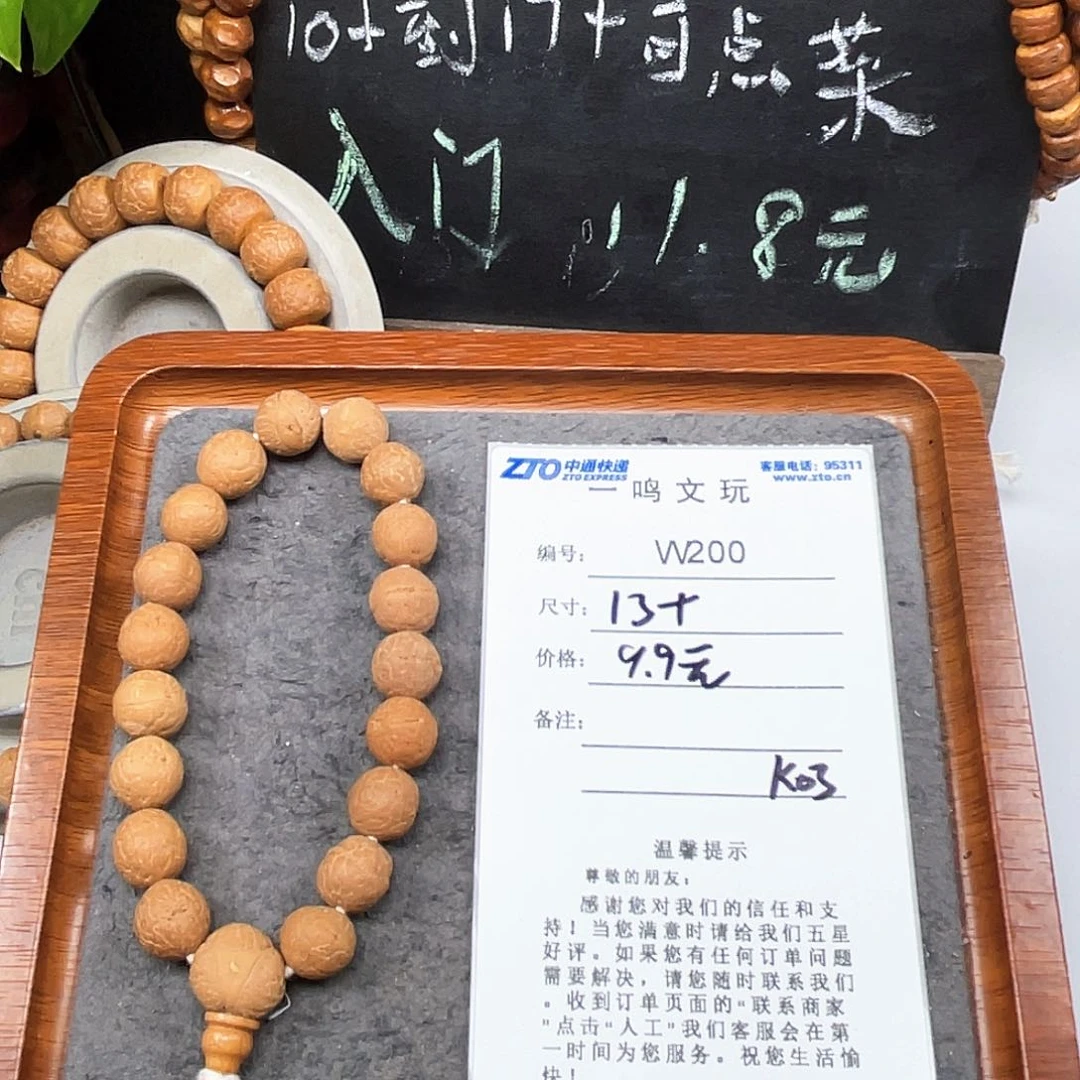 10+到17+自点菜
入门 11.8元
ZTO 中通快递
ZTO EXPRESS
客服电话：95311
www.zto.cn
一鸣文玩
编号： W200
尺寸： 13+
价格： 9.9元
备注：
K03
温馨提示
尊敬的朋友：
感谢您对我们的信任和支
持！当您满意时请给我们五星
好评。如果您有任何订单问题
需要解决，请您随时联系我们
。收到订单页面的"联系商家
"点击"人工"我们客服会在第
一时间为您服务。祝您生活愉
快！